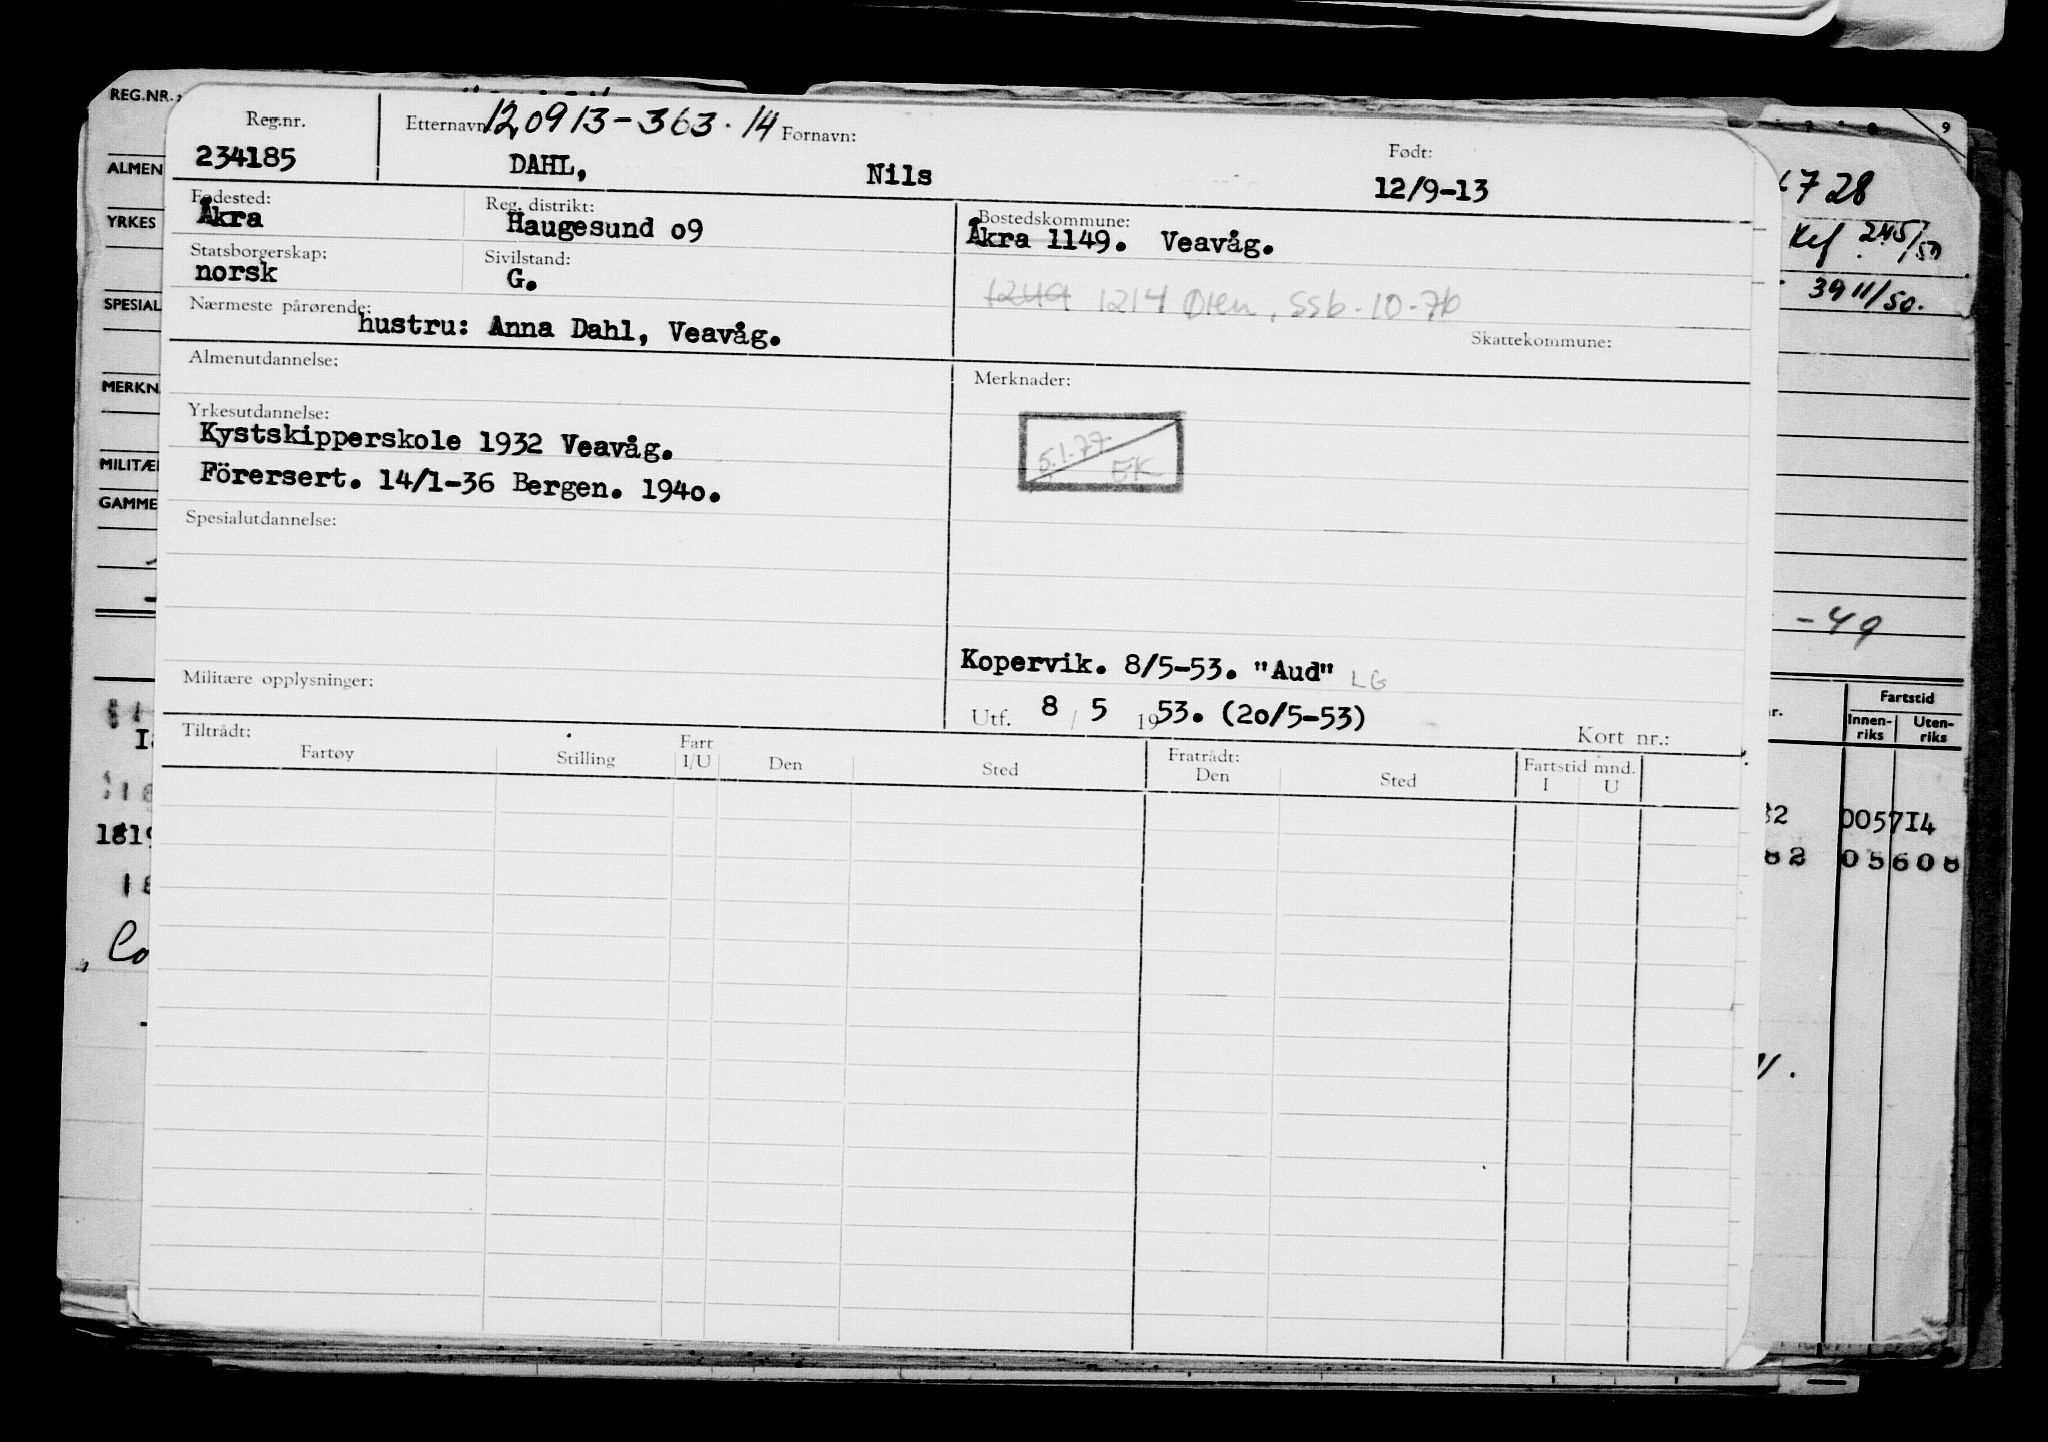 REG.NR.:
ALMEN
YRKES
SPESIAL
MERKN
MILITÆ
GAMME
Reg.nr. Etternavn 120913-363.14 Fornavn: Født:
234185 DAHL, Nils 12/9-13
Fødested: Reg. distrikt: Bostedskommune:
Åkra Haugesund o9 Åkra 1149. Veavåg.
Statsborgerskap: Sivilstand:
norsk G.
1249 1214 Ølen, SSb-10-76
Nærmeste pårørende: Skattekommune:
hustru: Anna Dahl, Veavåg.
Almenutdannelse: Merknader:
Yrkesutdannelse:
Kystskipperskole 1932 Veavåg.
5.1.77 EK
Förersert. 14/1-36 Bergen. 194o.
Spesialutdannelse:
Kopervik. 8/5-53. "Aud" LG
Militære opplysninger:
Utf. 8 / 5 1953. (2o/5-53) Kort nr.:
Tiltrådt: Fratrådt:
Fartøy Stilling Fart I/U Den Sted Den Sted Fartstid mnd. I U
9
6728
39 11/50.
-49
Fartstid
Innen-riks Uten-riks
32 005714
82 05608